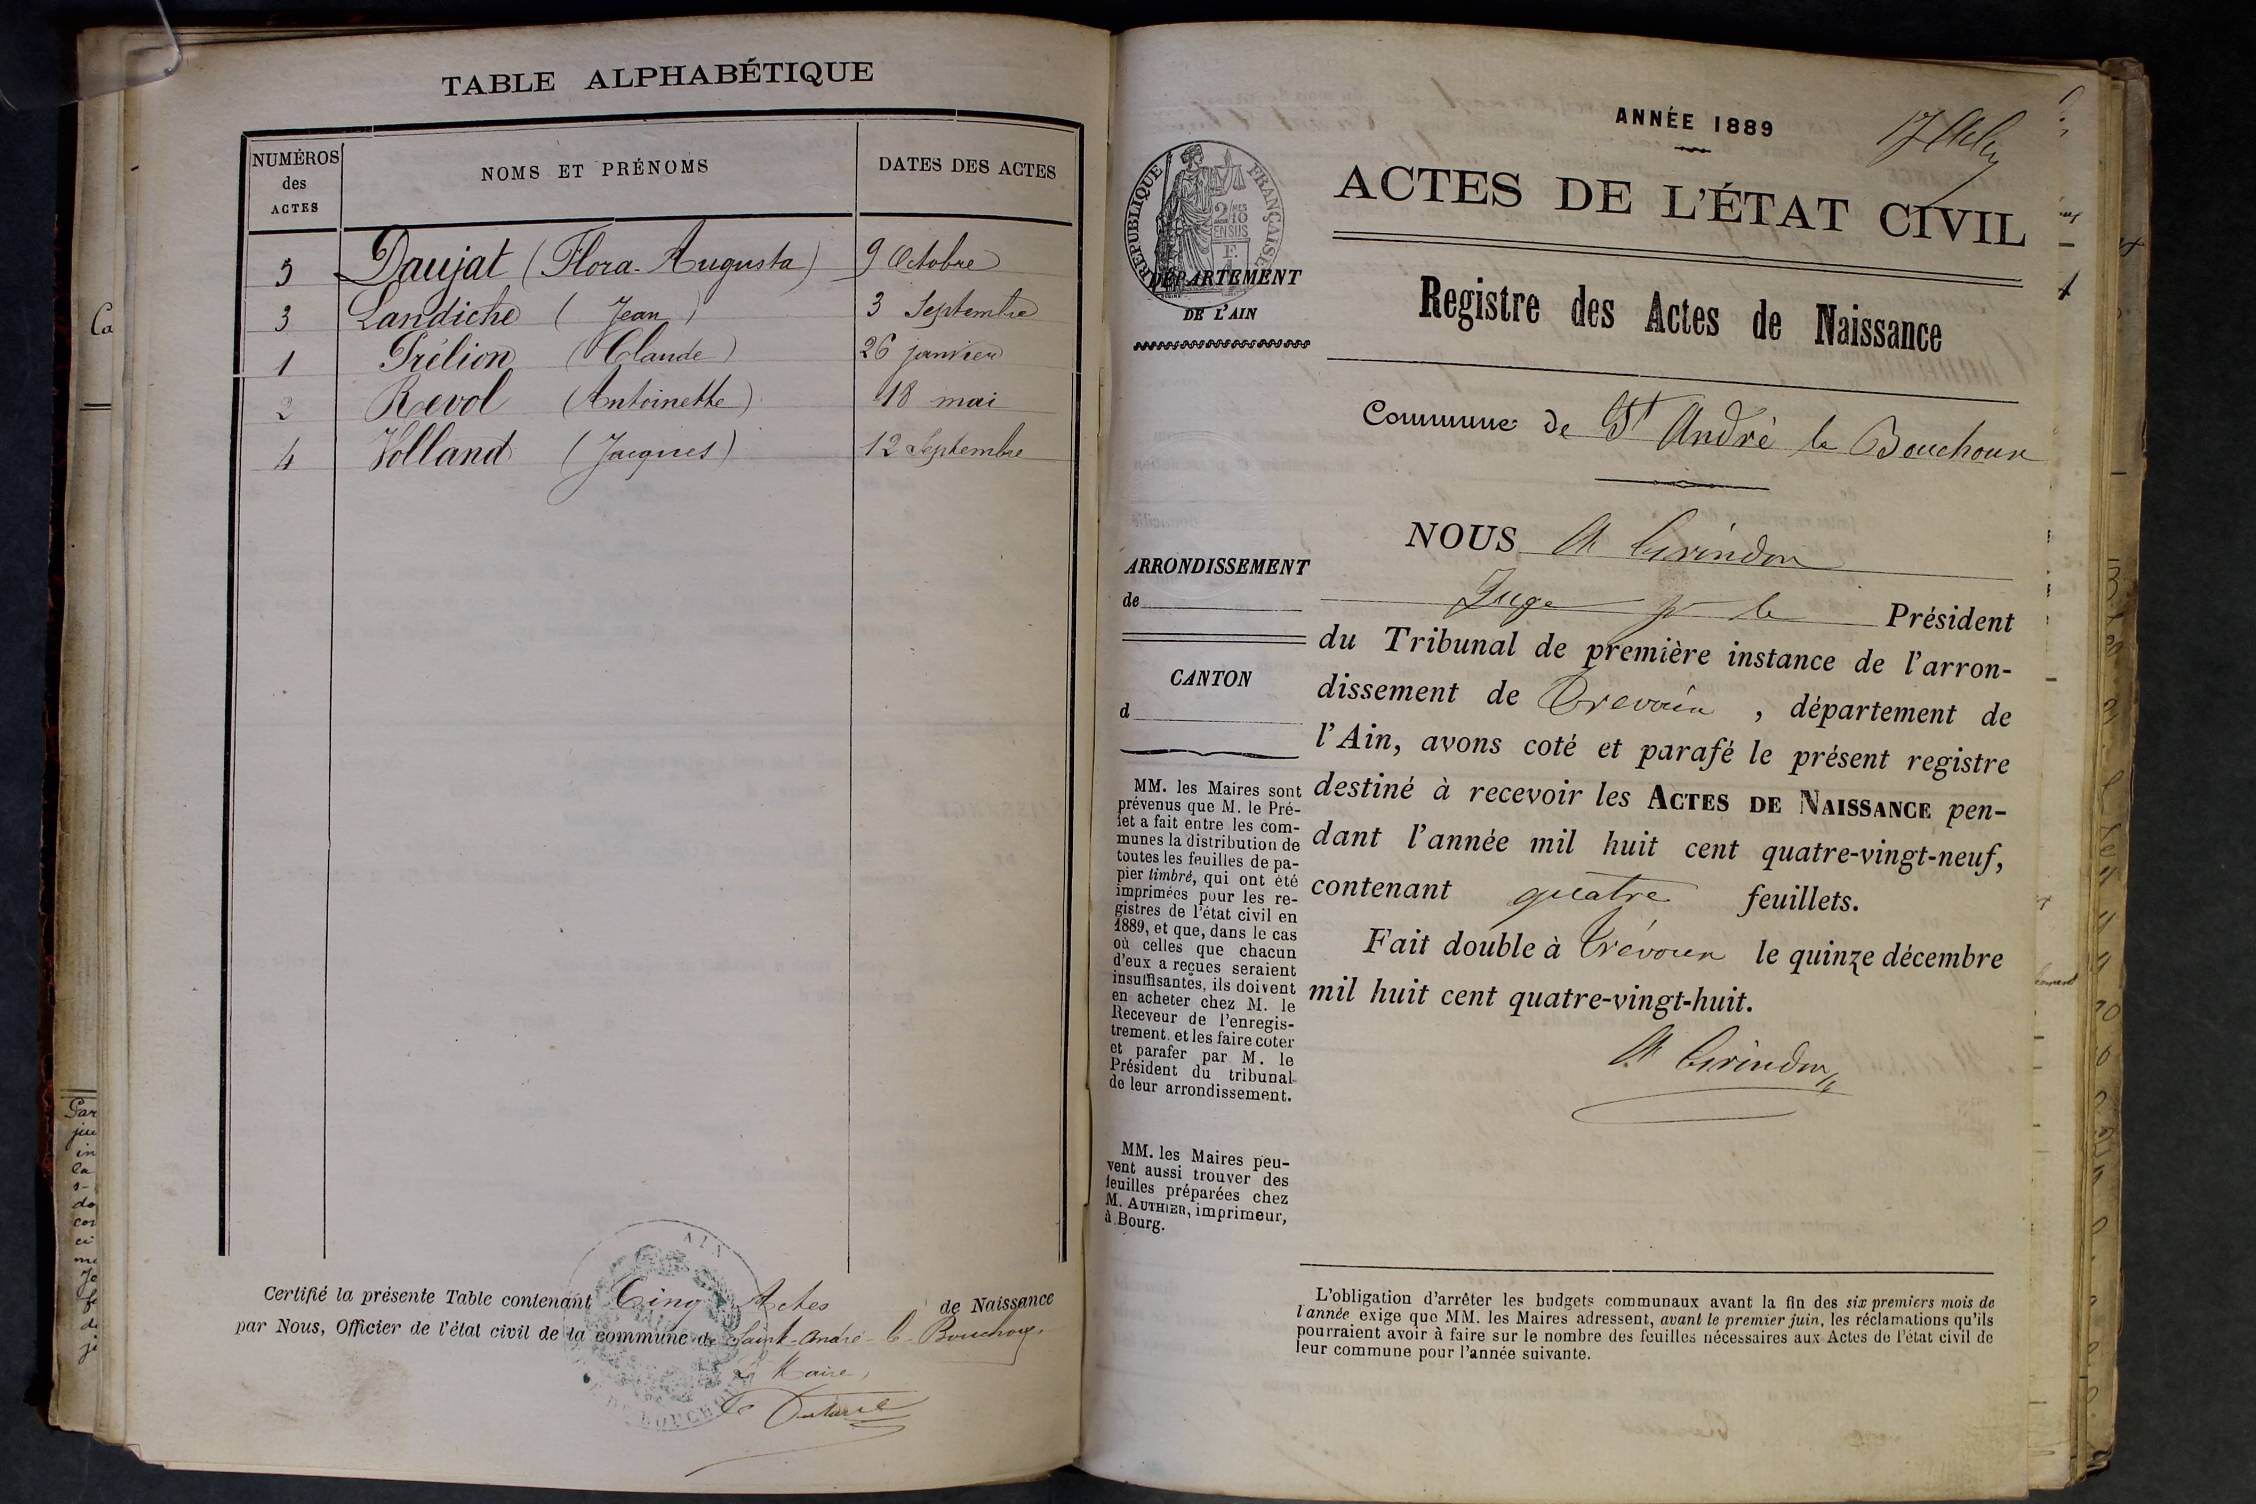 TABLE ALPHABÉTIQUE
NUMÉROS des ACTES
NOMS ET PRÉNOMS
DATES DES ACTES
5 Daujat (Flora-Augusta) 9 Octobre
3 Landiche (Jean) 3 Septembre
1 Prélion (Claude) 26 janvier
2 Revol (Antoinette) 18 mai
4 Volland (Jacques) 12 Septembre
Certifié la présente Table contenant Cinq Actes de Naissance
par Nous, Officier de l'état civil de la commune de Saint-André-le-Bouchoux,
Le Maire,
ANNÉE 1889
ACTES DE L'ÉTAT CIVIL
RÉPUBLIQUE FRANÇAISE
DÉPARTEMENT
DE L'AIN
Registre des Actes de Naissance
Commune de St André le Bouchoux
ARRONDISSEMENT
de
CANTON
d
MM. les Maires sont
prévenus que M. le Pré-
fet a fait entre les com-
munes la distribution de
toutes les feuilles de pa-
pier timbré, qui ont été
imprimées pour les re-
gistres de l'état civil en
1889, et que, dans le cas
où celles que chacun
d'eux a reçues seraient
insuffisantes, ils doivent
en acheter chez M. le
Receveur de l'enregis-
trement, et les faire coter
et parafer par M. le
Président du tribunal
de leur arrondissement.
MM. les Maires peu-
vent aussi trouver des
feuilles préparées chez
M. AUTHIER, imprimeur,
à Bourg.
NOUS A Grindon
Juge pr le Président
du Tribunal de première instance de l'arron-
dissement de Trévoux, département de
l'Ain, avons coté et parafé le présent registre
destiné à recevoir les ACTES DE NAISSANCE pen-
dant l'année mil huit cent quatre-vingt-neuf,
contenant quatre feuillets.
Fait double à Trévoux le quinze décembre
mil huit cent quatre-vingt-huit.
A Grindon
L'obligation d'arrêter les budgets communaux avant la fin des six premiers mois de
l'année exige que MM. les Maires adressent, avant le premier juin, les réclamations qu'ils
pourraient avoir à faire sur le nombre des feuilles nécessaires aux Actes de l'état civil de
leur commune pour l'année suivante.